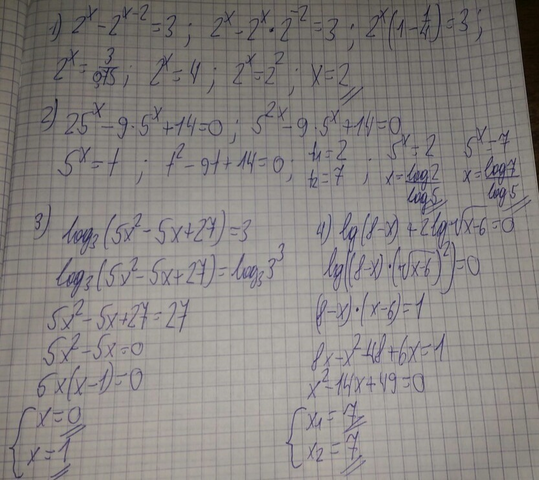 1) 2^x - 2^(x-2) = 3 ; 2^x - 2^x · 2^(-2) = 3 ; 2^x (1 - 1/4) = 3 ;
2^x = 3/0,75 ; 2^x = 4 ; 2^x = 2^2 ; x = 2
2) 25^x - 9 · 5^x + 14 = 0 ; 5^(2x) - 9 · 5^x + 14 = 0
5^x = t ; t^2 - 9t + 14 = 0 ; t1 = 2 ; 5^x = 2 5^x = 7
t2 = 7 ; x = log2/log5 x = log7/log5
3) log₃(5x² - 5x + 27) = 3
log₃(5x² - 5x + 27) = log₃3³
5x² - 5x + 27 = 27
5x² - 5x = 0
5x(x-1) = 0
x = 0
x = 1
4) lg(8-x) + 2lg√(x-6) = 0
lg((8-x) · (√(x-6))²) = 0
(8-x) · (x-6) = 1
8x - x² - 48 + 6x = 1
x² - 14x + 49 = 0
x₁ = 7
x₂ = 7